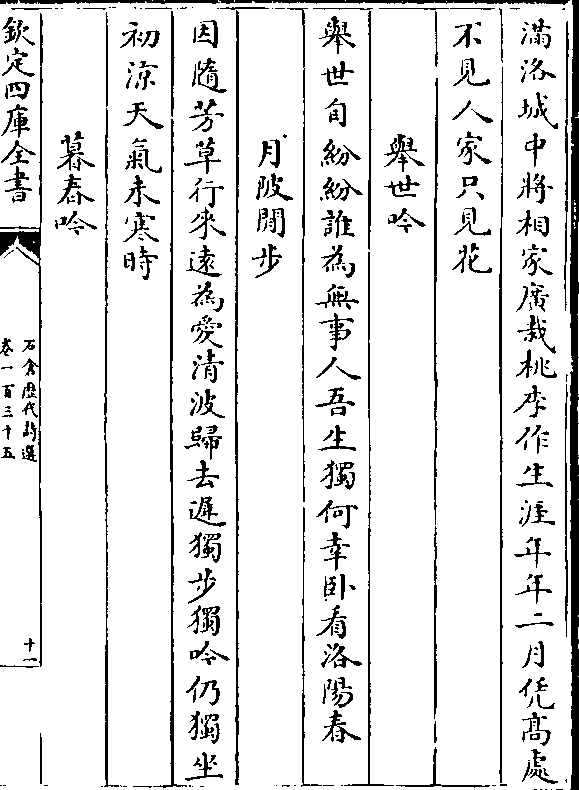 滿洛城中將相家廣栽桃李作生涯年年二月凭髙處
不見人家只見花
舉世吟
舉世自紛紛誰為無事人吾生獨何幸卧看洛陽春
月陂閒步
因隨芳草行來遠為愛清波歸去遲獨步獨吟仍獨坐
初涼天氣未寒時
暮春吟
欽定四庫全書
石倉歷代詩選
卷一百三十五
十一